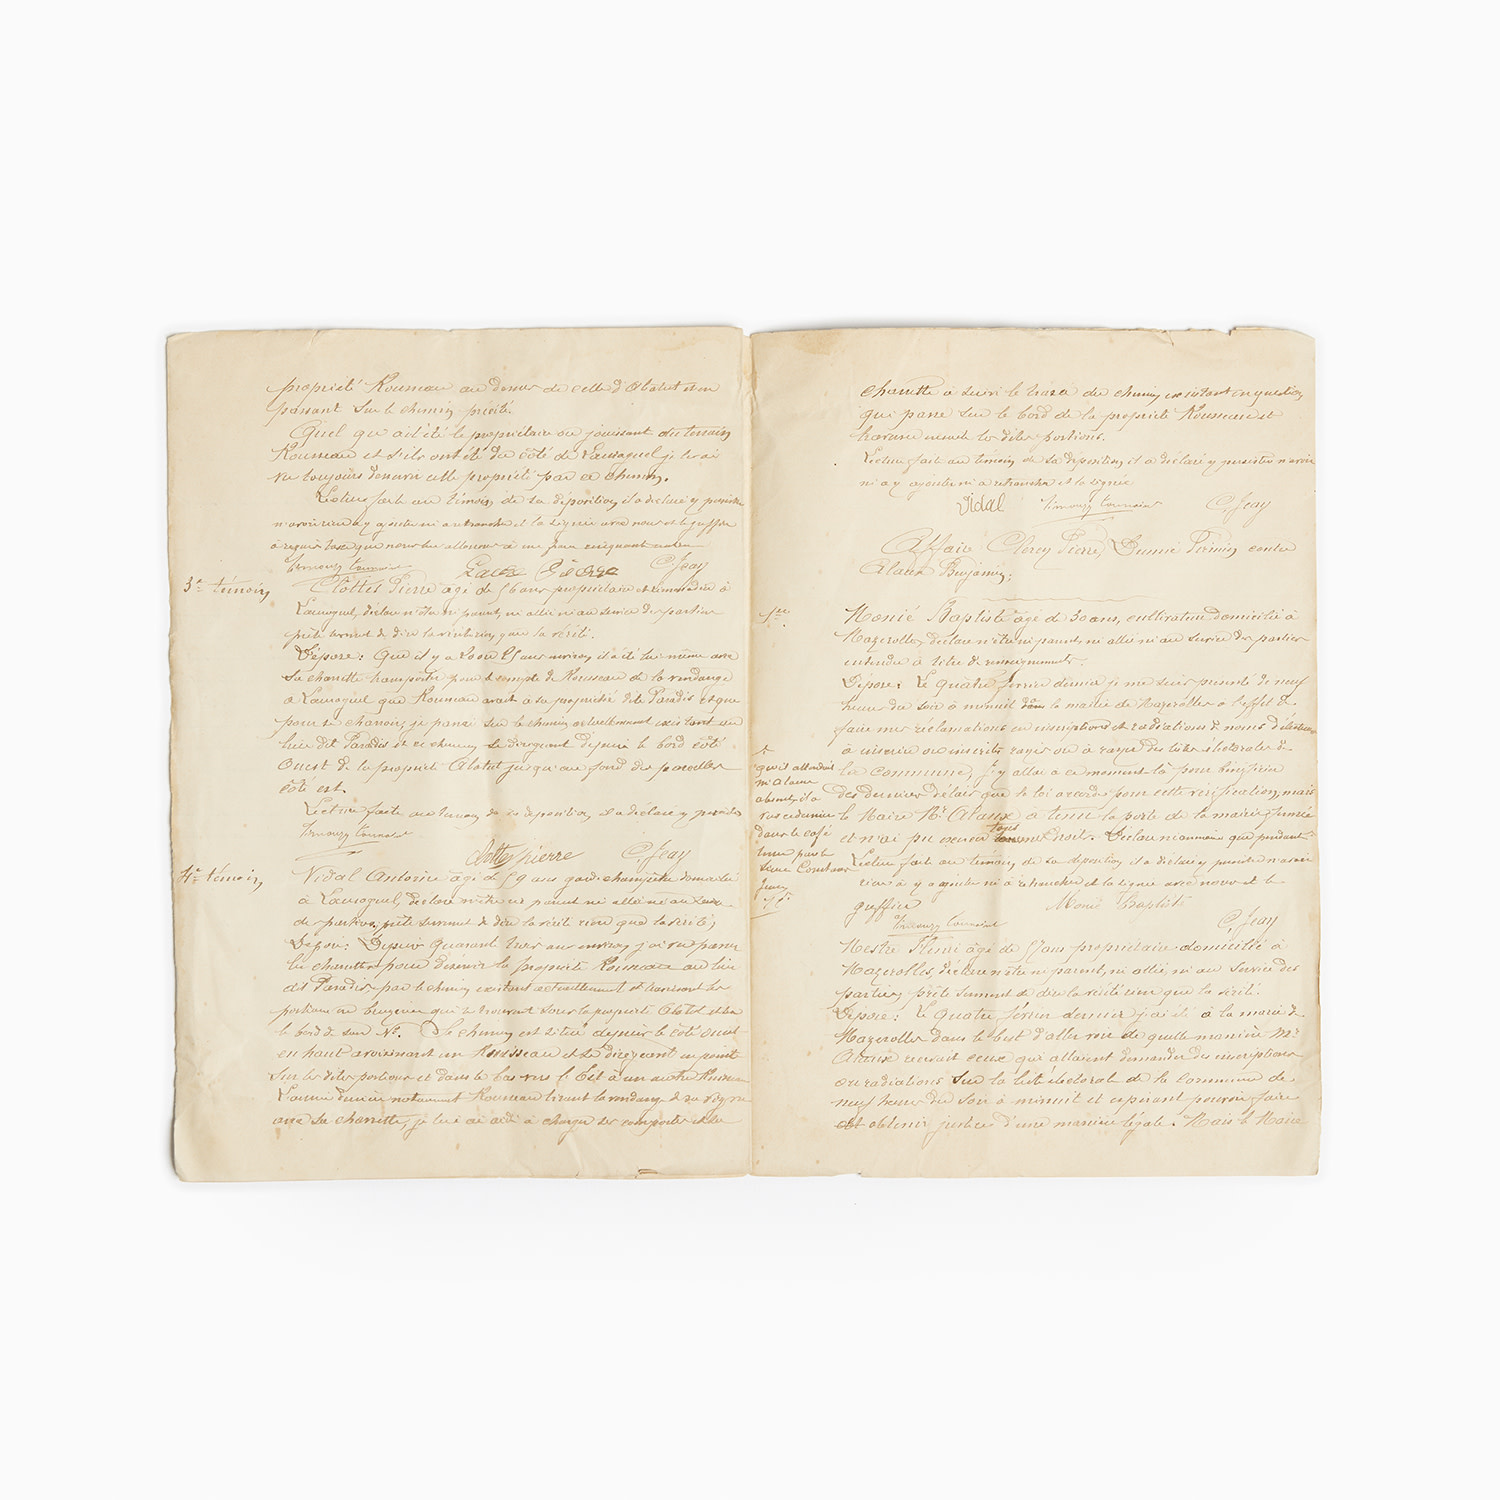 propriété Rousseau au dessus de celle d'Abatut et en
passant sur le chemin précité.
Quel qu'ait été le propriétaire ou jouissant du terrain
Rousseau et s'ils ont été du côté de Lauraguel je les ai
vu toujours desservir cette propriété par ce chemin.
Lecture faite au témoin de sa déposition, il a déclaré y persister
n'avoir rien à y ajouter ni à retrancher et la signée avec nous et le greffier
à requis taxe que nous lui allouons à un franc cinquante
C. Jeay
3e témoin
Clottes Pierre âgé de 56 ans propriétaire et domicilié à
Lauraguel, déclare n'être ni parent, ni allié ni au service des parties
prête serment de dire la vérité rien que la vérité.
Dépose: Que il y a 20 ou 25 ans environ il a été lui même avec
sa charrette transporter pour le compte de Rousseau de la vendange
à Lauraguel que Rousseau avait à sa propriété dite Paradis et que
pour se charroir, je passai sur le chemin actuellement existant au
lieu dit Paradis et ce chemin se dirigeant depuis le bord côté
Ouest de la propriété Abatut jusqu'au fond des parcelles
côté est.
Lecture faite au témoin de sa déposition, il a déclaré y persister
Clottes pierre C. Jeay
4e témoin
Vidal Antoine âgé de 59 ans garde-champêtre domicilié
à Lauraguel, déclare n'être ni parent ni allié ni au service
des parties, prête serment de dire la vérité rien que la vérité;
Dépose: Depuis quarante trois ans environ j'ai vu passer
les charrettes pour desservir la propriété Rousseau au lieu
dit Paradis par le chemin existant actuellement et traversant les
portions en bruyère qui se trouvent sous la propriété Abatut et sur
le bord de son No. Le chemin est situé depuis le côté ouest
en haut avoisinant un Ruisseau et se dirigeant en pointe
sur les dites portions et dans le bas vers l'Est à un autre Ruisseau
L'année dernière notamment Rousseau tirant la vendange de sa vigne
avec sa charrette, je lui ai aidé à charger ses comportes et sa
charrette à suivi le tracé du chemin existant en question
qui passe sur le bord de la propriété Rousseau et
traverse ensuite les dites portions.
Lecture faite au témoin de sa déposition il a déclaré y persister n'avoir
ni à y ajouter ni à retrancher et la signée
Vidal C. Jeay
Affaire Clercy Pierre, Pirmin contre
Alaux Benjamin;
1er
Monié Baptiste âgé de 30 ans, cultivateur domicilié à
Mazerolles, déclare n'être ni parent, ni allié ni au service des parties
entendu à titre de renseignements.
Dépose: Le quatre février dernier je me suis présenté de neuf
heures du soir à minuit dans la mairie de Mazerolles à l'effet de
faire mes réclamations en inscriptions et radiations de noms d'électeurs
à inscrire ou inscrits rayés ou à rayer des listes électorales de
la commune, J'y allai à ce moment là pour bénéficier
des derniers délais que la loi accorde pour cette vérification, mais
le Maire Mr Alaux a tenu la porte de la mairie fermée
et n'ai pu exercer mon droit. Déclare néanmoins que pendant
qu'il attendait
Mr Alaux
absent, il a
dans le café
tenu par le
sieur
Lecture faite au témoin de sa déposition il a déclaré y persister n'avoir
rien à y ajouter ni à retrancher et la signée avec nous et le
greffier
Monié Baptiste
C. Jeay
Mestre Henri âgé de 57 ans propriétaire domicilié à
Mazerolles, déclare n'être ni parent, ni allié, ni au service des
parties, prête serment de dire la vérité rien que la vérité.
Dépose: Le quatre février dernier j'ai été à la mairie de
Mazerolles dans le but d'aller voir de quelle manière Mr
Alaux recevait ceux qui allaient demander des inscriptions
ou radiations sur la liste électorale de la commune de
neuf heures du soir à minuit et espérant pouvoir faire
et obtenir justice d'une manière légale. Mais le Maire